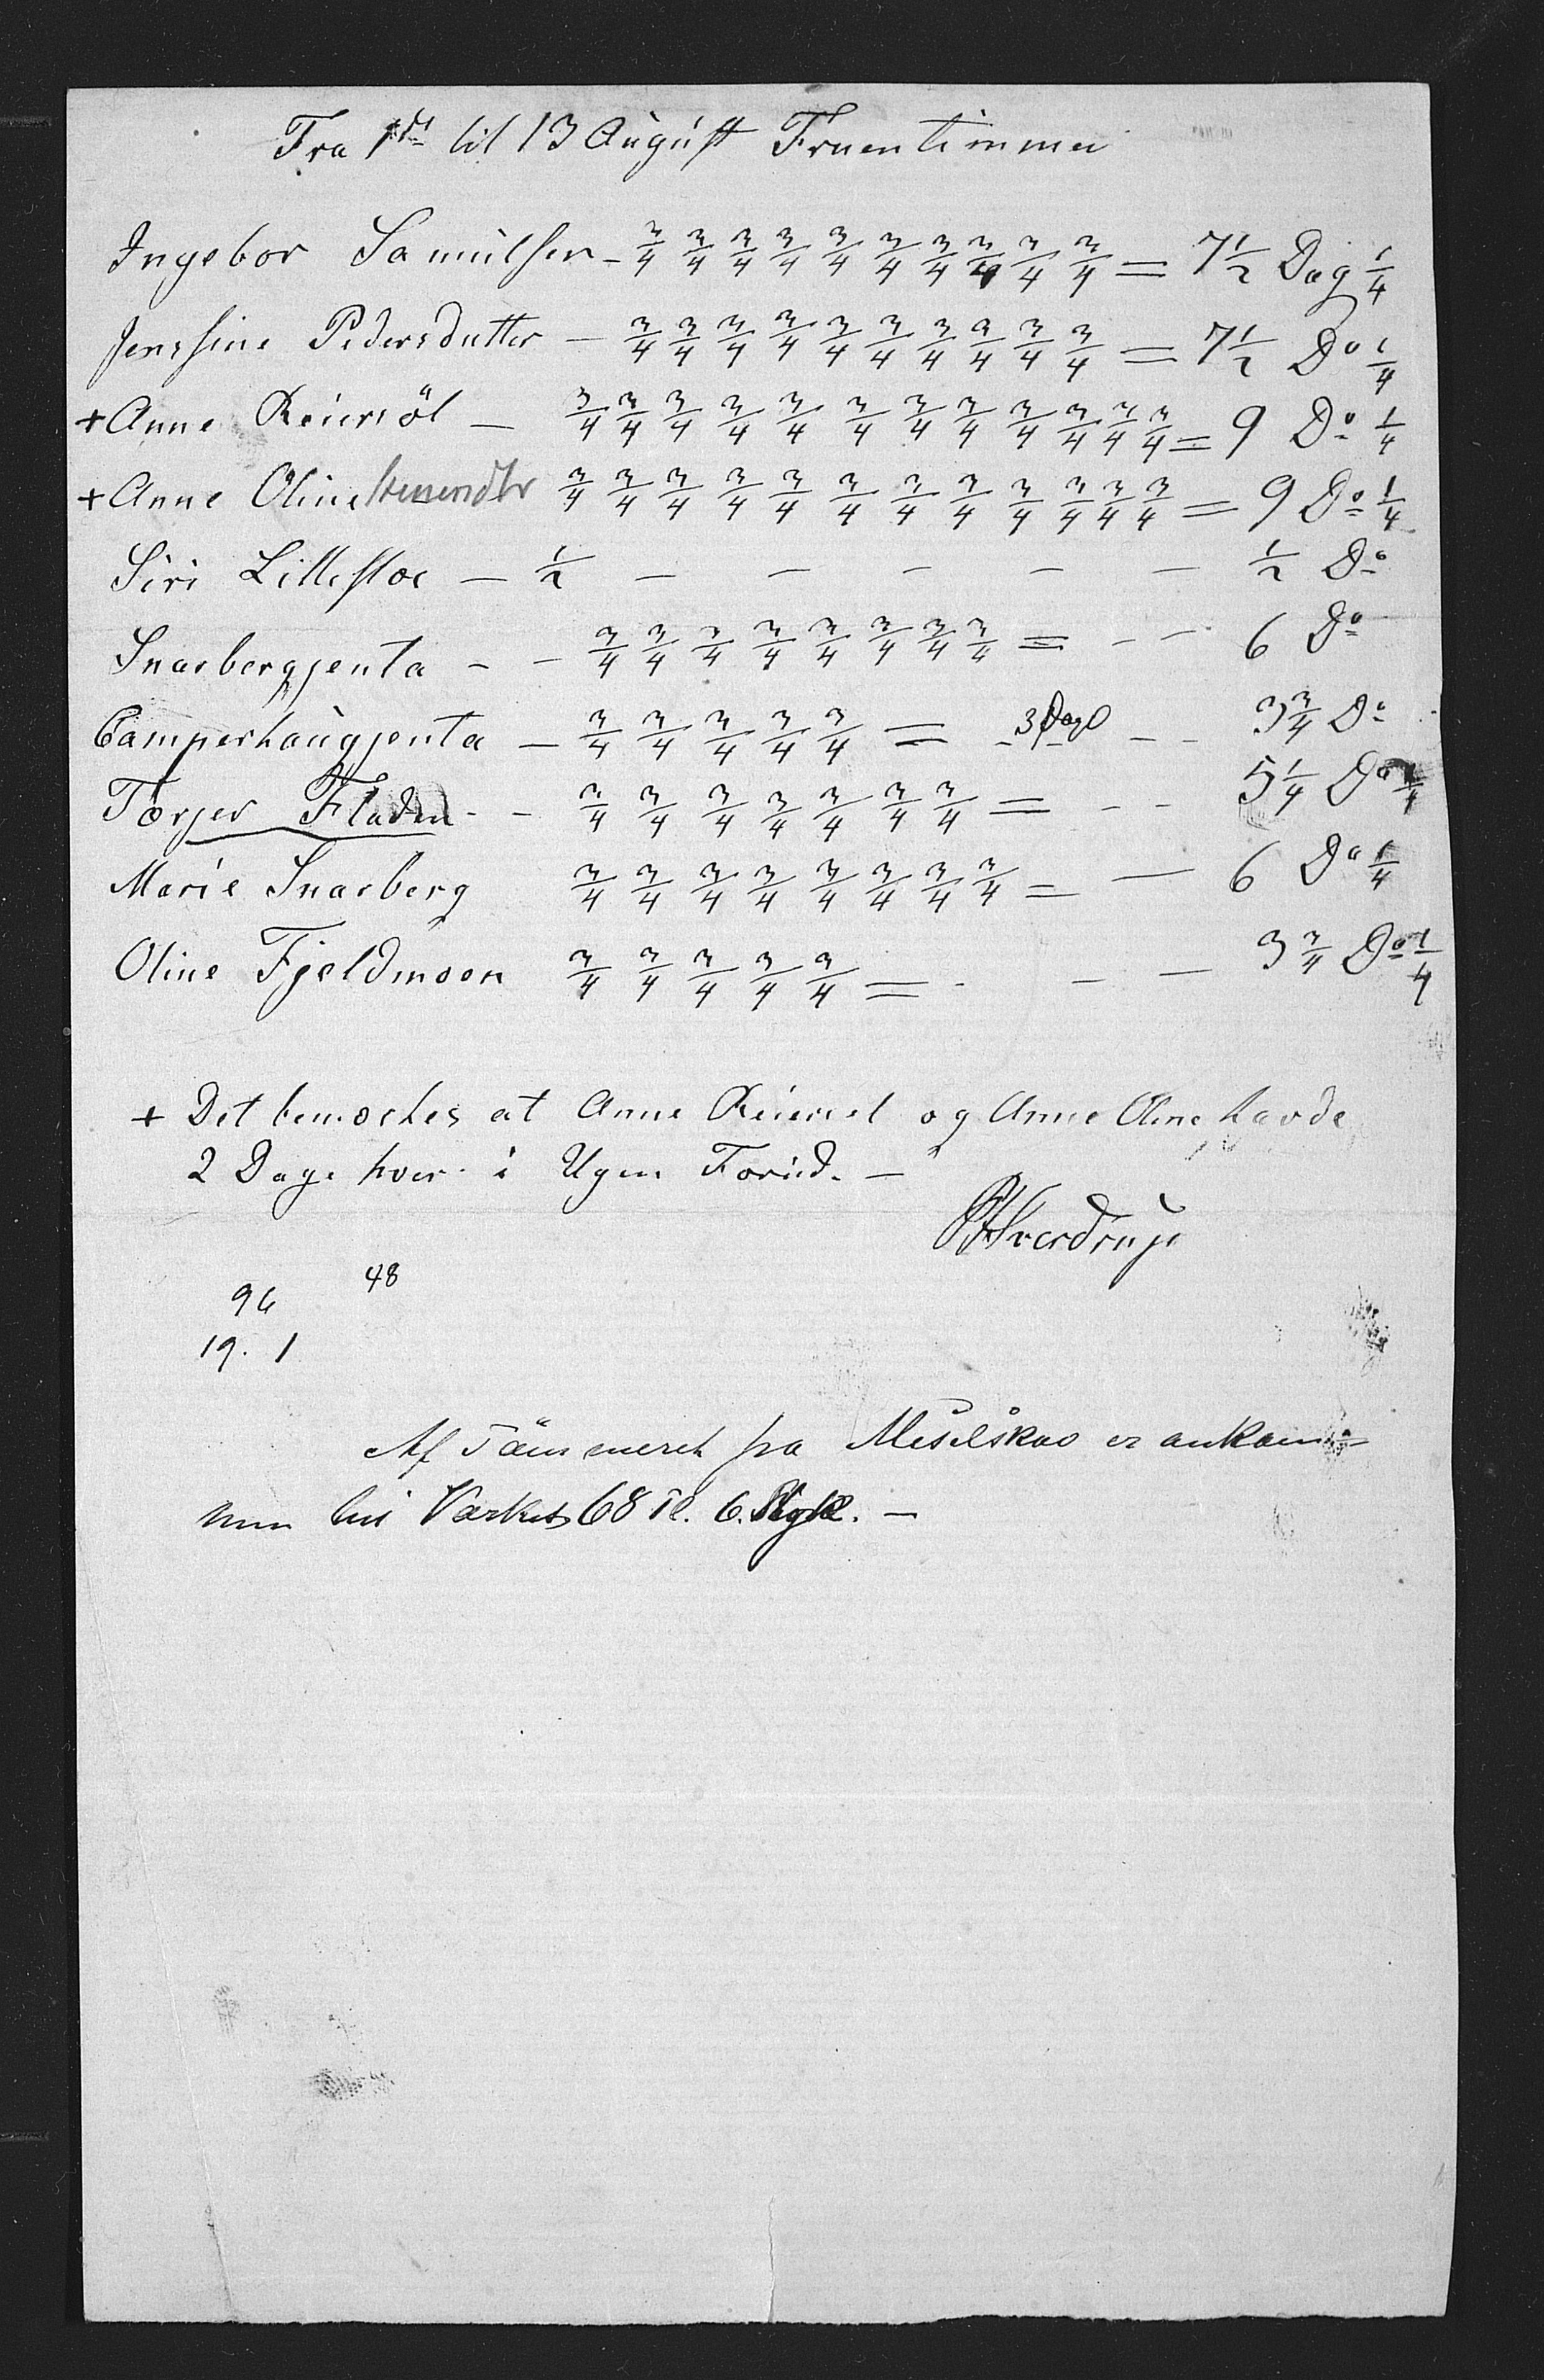 Fra 1ste til 13 August Fruentimmer
Ingebor Samuelsen - 3/4 3/4 3/4 3/4 3/4 3/4 3/4 3/4 3/4 3/4 = 7 1/2 Dag 1/4
Jenssine Pedersdatter - 3/4 3/4 3/4 3/4 3/4 3/4 3/4 3/4 3/4 3/4 = 7 1/2 Do 1/4
+ Anne Reiersöl - 3/4 3/4 3/4 3/4 3/4 3/4 3/4 3/4 3/4 3/4 3/4 3/4 = 9 Do 1/4
+ Anne Oline 3/4 3/4 3/4 3/4 3/4 3/4 3/4 3/4 3/4 3/4 3/4 3/4 = 9 Do 1/4
Siri Lillesloe - 1/2 - - - - - 1/2 Do
Snarbergjenta - - 3/4 3/4 3/4 3/4 3/4 3/4 3/4 3/4 = - - 6 Do
Camperhaugjenta - 3/4 3/4 3/4 3/4 3/4 = 3 Dage - - 3 3/4 Do
Torjer Fladen - - 3/4 3/4 3/4 3/4 3/4 3/4 3/4 = - - 5 1/4 Do 1/4
Marie Snarberg 3/4 3/4 3/4 3/4 3/4 3/4 3/4 3/4 = - 6 Do 1/4
Oline Fjeldmoen 3/4 3/4 3/4 3/4 3/4 = - - - 3 3/4 Do 1/4
+ Det bemærkes at Anne Reiersel og Anne Oline havde
2 Dage hver i Ugen Forud. -
Sverdrup
48
96
19. 1
Af Tömmeret fra er ankom-
men til Værket 68 Tl. 6. Stykk. -